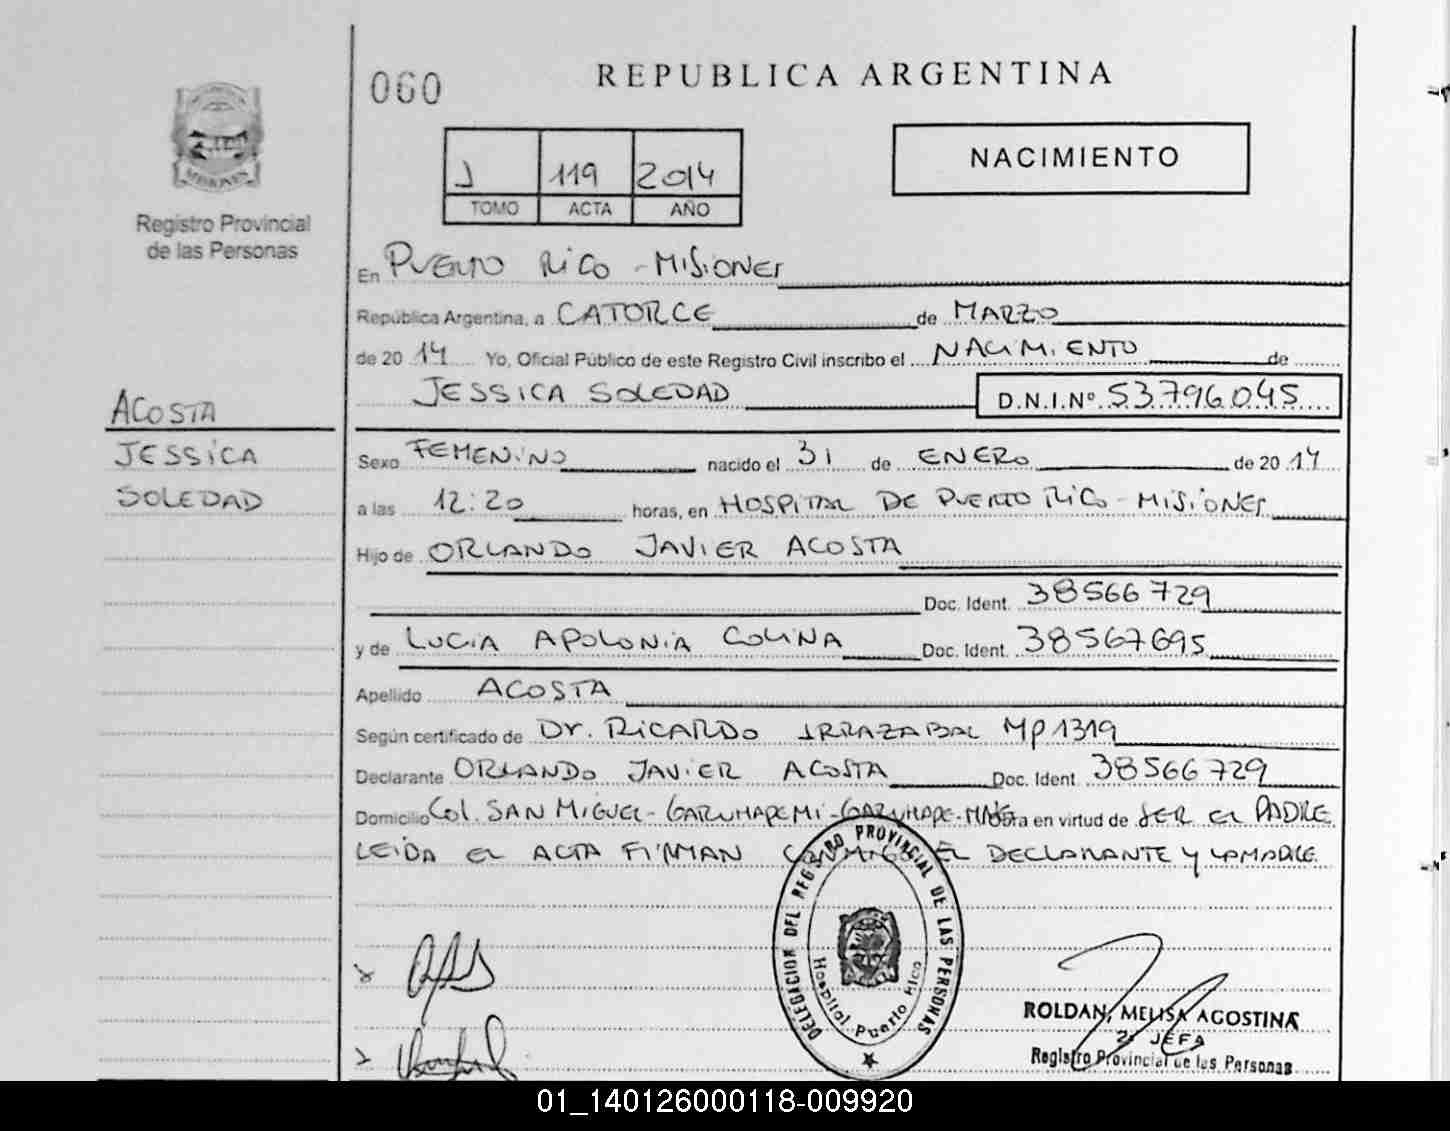 060
REPUBLICA ARGENTINA
NACIMIENTO
J 119 2014
TOMO ACTA AÑO
MISIONES
Registro Provincial
de las Personas
ACOSTA
JESSICA
SOLEDAD
En PUERTO RICO - MISIONES
República Argentina, a CATORCE de MARZO
de 20 14 Yo, Oficial Público de este Registro Civil inscribo el NACIMIENTO de
JESSICA SOLEDAD D.N.I.Nº 53796045
Sexo FEMENINO nacido el 31 de ENERO de 20 14
a las 12:20 horas, en HOSPITAL DE PUERTO RICO - MISIONES
Hijo de ORLANDO JAVIER ACOSTA
Doc. Ident. 38566729
y de LUCIA APOLONIA COLINA Doc. Ident. 38567695
Apellido ACOSTA
Según certificado de Dr. RICARDO IRRAZABAL MP1319
Declarante ORLANDO JAVIER ACOSTA Doc. Ident. 38566729
Domicilio Col. SAN MIGUEL - GARUHAPE MI - GARUHAPE - en virtud de SER EL PADRE
LEIDA EL ACTA FIRMAN CONMIGO EL DECLARANTE Y LA MADRE.
DELEGACION DEL REGISTRO PROVINCIAL DE LAS PERSONAS
Hospital Puerto Rico
ROLDAN, MELISA AGOSTINA
JEFA
Registro Provincial de las Personas
01_140126000118-009920